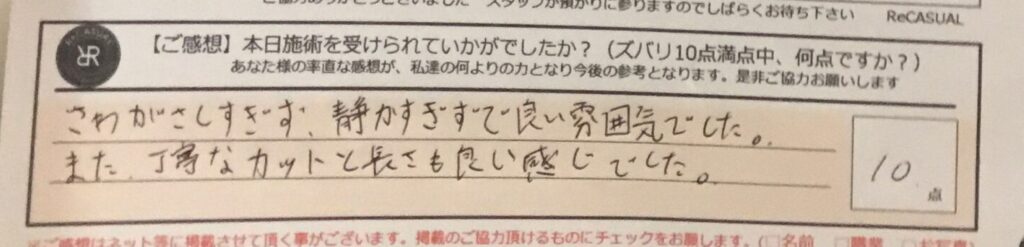 ご協力ありがとうございました スタッフが預かりに参りますのでしばらくお待ち下さい ReCASUAL
【ご感想】本日施術を受けられていかがでしたか？（ズバリ10点満点中、何点ですか？）
あなた様の率直な感想が、私達の何よりの力となり今後の参考となります。是非ご協力お願いします
さわがさしすぎず、静かすぎずで良い雰囲気でした。
また、丁寧なカットと長さも良い感じでした。
10 点
※ご感想はネット等に掲載させて頂く事がございます。掲載のご協力頂けるものにチェックをお願します。（□名前 □職業